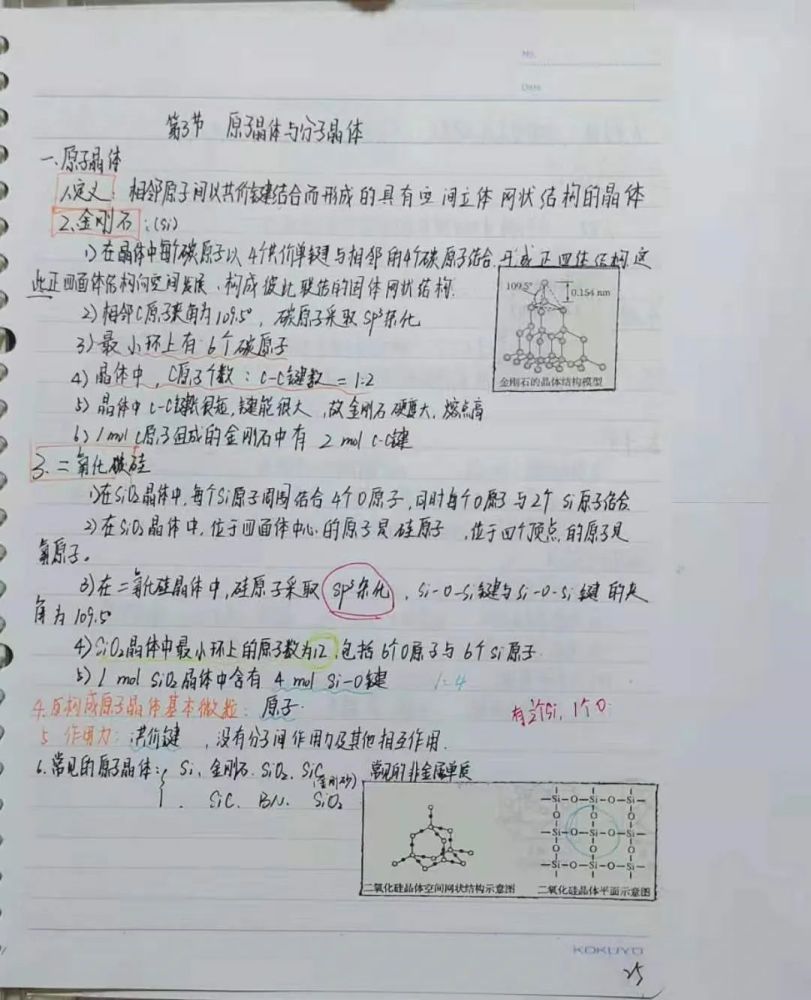 No.
Date
第3节 原子晶体与分子晶体
一、原子晶体
1、定义：相邻原子间以共价键结合而形成的具有空间立体网状结构的晶体
2、金刚石：(Si)
1)在晶体中每个碳原子以4个共价单键与相邻的4个碳原子结合，形成正四体结构，这
些正四面体结构向空间发展，构成彼此联结的固体网状结构.
2)相邻C原子夹角为109.5°，碳原子采取sp³杂化
3)最小环上有6个碳原子
4)晶体中，C原子个数：C-C键数=1:2
5)晶体中C-C键长很短，键能很大，故金刚石硬度大，熔点高
6)1mol C原子组成的金刚石中有 2 mol C-C键
109.5°
0.154 nm
金刚石的晶体结构模型
3、二氧化硅
1)在SiO₂晶体中，每个Si原子周围结合4个O原子，同时每个O原子与2个Si原子结合
2)在SiO₂晶体中，位于四面体中心的原子是硅原子，位于四个顶点的原子是
氧原子。
3)在二氧化硅晶体中，硅原子采取sp³杂化，Si-O-Si键与Si-O-Si键的夹
角为109.5°
4)SiO₂晶体中最小环上的原子数为12，包括6个O原子与6个Si原子
5)1 mol SiO₂晶体中含有 4 mol Si-O键 1:4
4、构成原子晶体基本微粒：原子.
有½个Si，1个O
5 作用力：共价键，没有分子间作用力及其他相互作用.
6、常见的原子晶体：Si、金刚石、SiO₂、SiC(金刚砂) 常见的非金属单质
SiC、BN、SiO₂
-Si-O-Si-O-Si-
O O O
-Si-O-Si-O-Si-
O O O
-Si-O-Si-O-Si-
二氧化硅晶体空间网状结构示意图
二氧化硅晶体平面示意图
KOKUYO
25